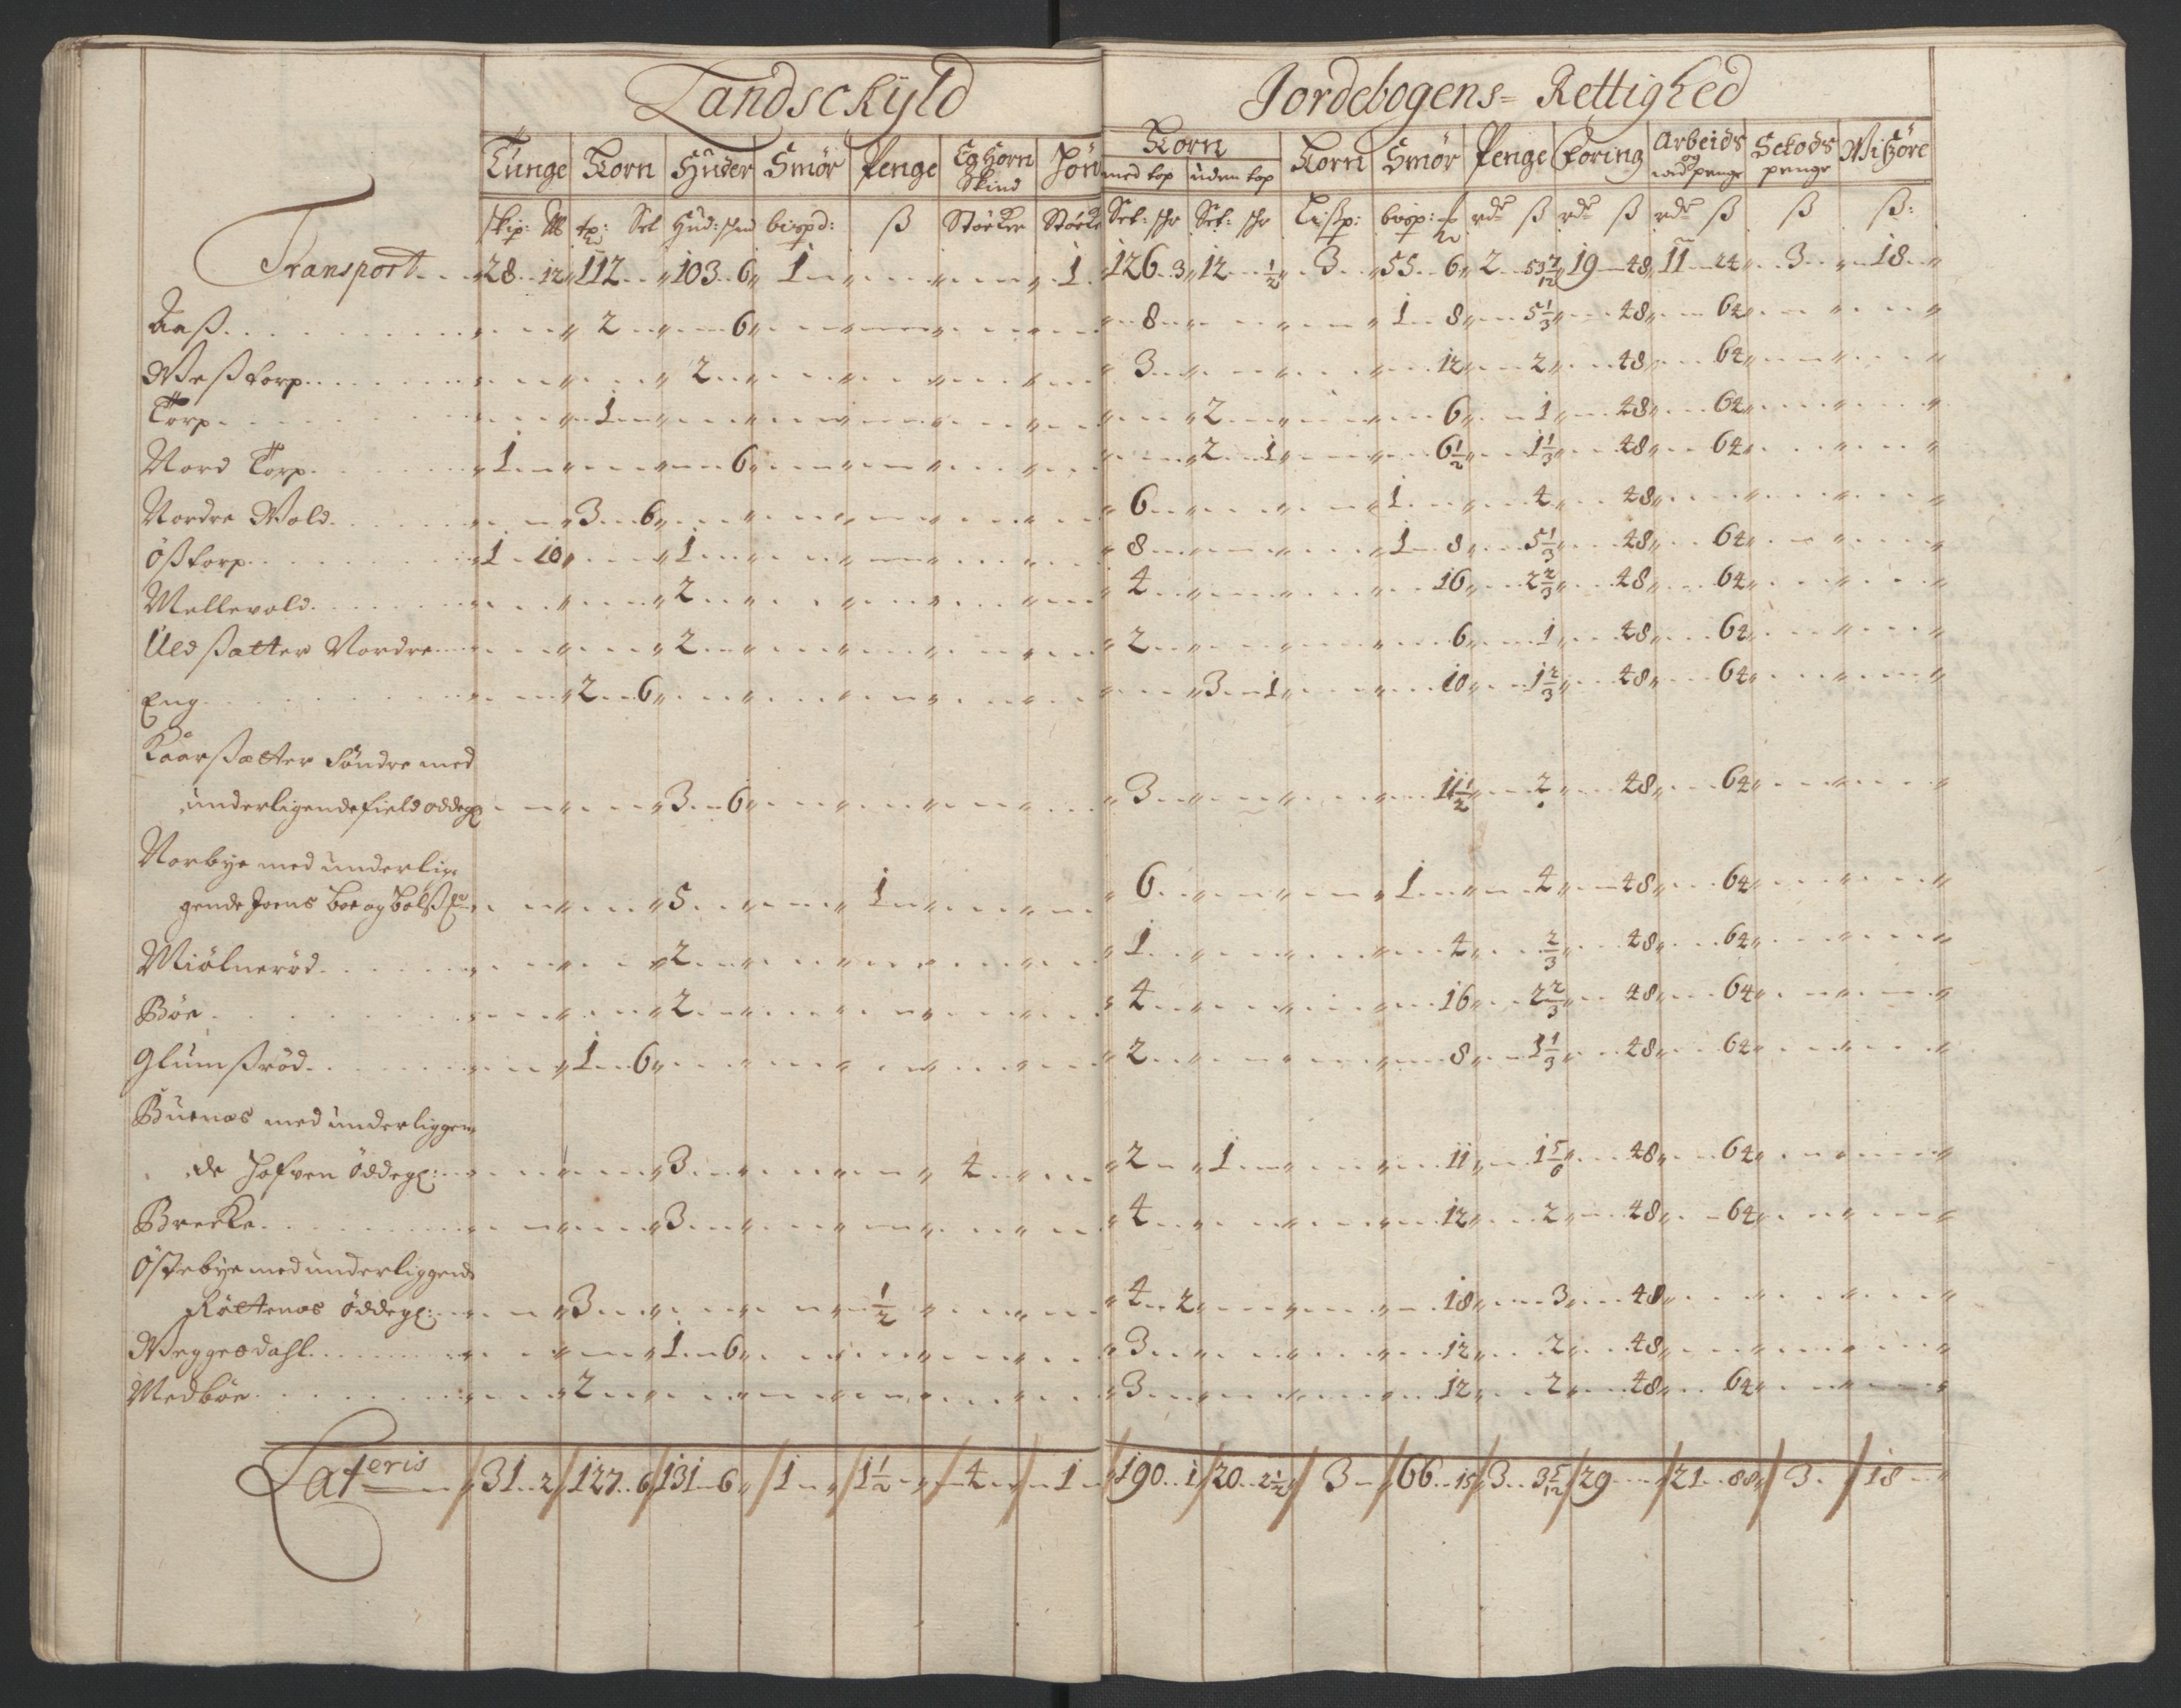 Landschyld
Jordebogens= Rettighed
Tunge Korn Huder Smør Penge Eghorn Skind
Korn
med top uden top
Korn Smør Penge Foring Arbeids og penge penge Witøre
skip: tp: Set Hud: skind bispd: ß Støcker Støcker
Set: Set: Lißp: bisp: rdr ß rdr ß rdr ß ß ß:
Transport 28 12 112 103 6 1 1 126 3 12 1/2 3 55 6 2 53 7/12 19 48 11 24 3 18
Aaß 2 6 8 1 8 5 1/3 48 64
Weßtorp 2 3 12 2 48 64
Torp 1 2 6 1 48 64
Nord Torp 1 6 2 1 6 1/2 1 1/3 48 64
Nordre Wold 3 6 6 1 4 48
Ößtorp 1 10 1 8 1 8 5 1/3 48 64
Mellevold 2 4 16 2 2/3 48 64
Uldsatter Nordre 2 2 6 1 48 64
Eng 2 6 3 1 10 1 2/3 48 64
Kaarßætter Söndre med
underligende field oddegl 3 6 3 11 1/2 2 48 64
Norbye med underlig=
gende Joens boe og 5 1 6 1 4 48 64
Miölnerød 2 1 4 2/3 48 64
Böe 2 4 16 2 2/3 48 64
Glumßrød 1 6 2 8 1 1/3 48 64
Buenæs med underliggen=
de Hofven Öddegl: 3 4 2 1 11 1 5/6 48 64
Brecke 3 4 12 2 48 64
Östebye med underliggende
Röttenæs Öddegl: 3 1/2 4 2 18 3 48
Weggesdahl 1 6 3 12 2 48
Medböe 2 3 12 2 48 64
Lateris 31 2 127 6 131 6 1 1 1/2 4 1 190 1 20 2 1/2 3 66 15 3 3 5/12 29 21 88 3 18